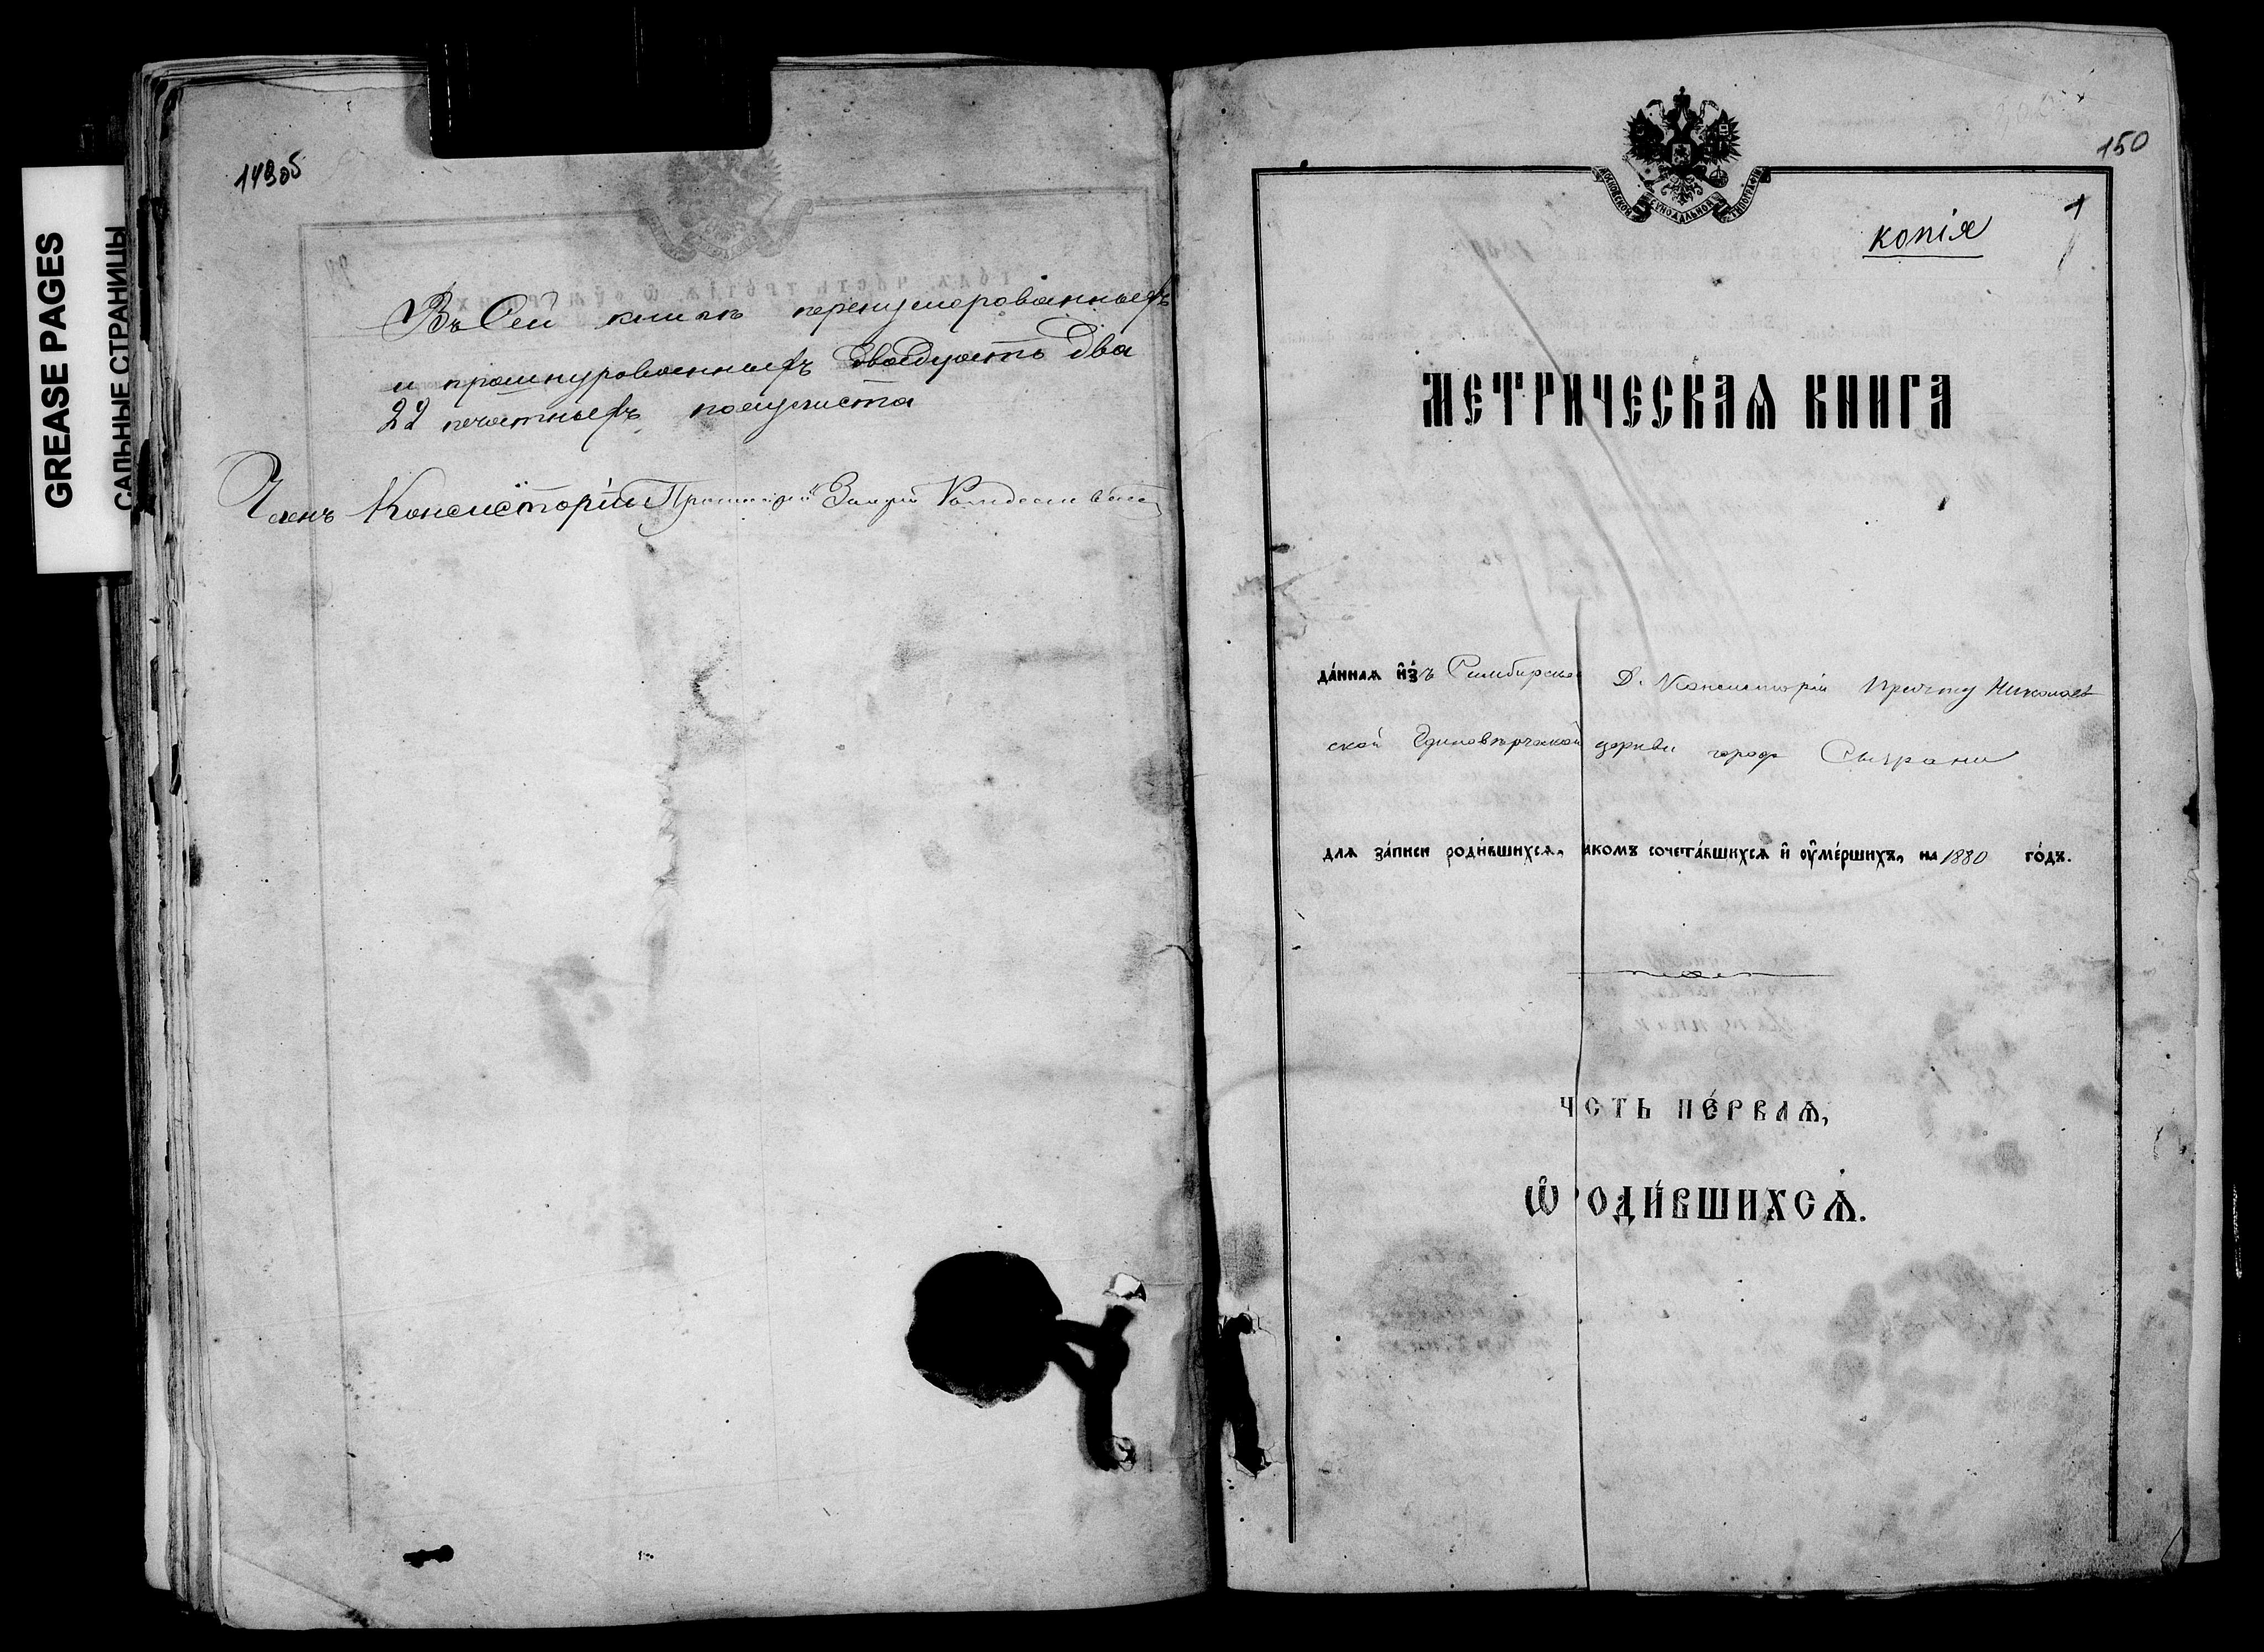 GREASE PAGES
САЛЬНЫЕ СТРАНИЦЫ
Въ Сей книгѣ перенумерованныхъ
и прошнурованныхъ двадцать два
22 печатныхъ полулиста
Членъ Консисторіи
150
МОСКОВСКОЙ СѴНОДАЛЬНОЙ ТИПОГРАФІИ
1
копія
МЕТРИЧЕСКАѦ КНИГА
да́ннаѧ и҆з̾ъ Симбирской Д. Консисторіи причту Николаев
ской Единовѣрческой церкви города Сызрани
длѧ за́писи роди́вшихсѧ, акомъ сочета́вшихсѧ и҆ ᲂу҆ме́ршихъ, на 1880 го́дъ.
Ч СТЬ ПЕ́РВАѦ,
Ѡ҆ ОДИ́ВШИХСѦ.